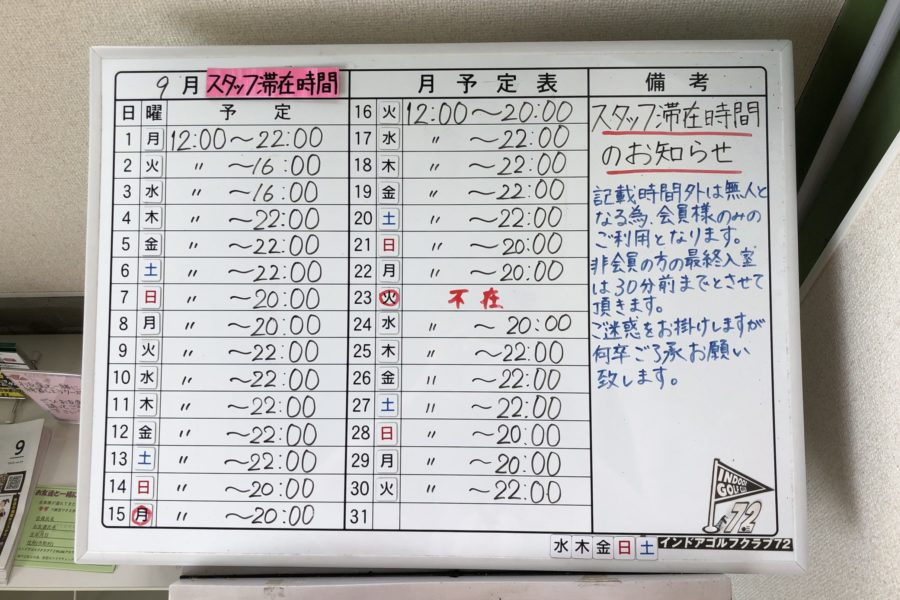 9月 スタッフ滞在時間
日 曜 予定
1 月 12:00〜22:00
2 火 〃 〜16:00
3 水 〃 〜16:00
4 木 〃 〜22:00
5 金 〃 〜22:00
6 土 〃 〜22:00
7 日 〃 〜20:00
8 月 〃 〜20:00
9 火 〃 〜22:00
10 水 〃 〜22:00
11 木 〃 〜22:00
12 金 〃 〜22:00
13 土 〃 〜22:00
14 日 〃 〜20:00
15 月 〃 〜20:00
月予定表
16 火 12:00〜20:00
17 水 〃 〜22:00
18 木 〃 〜22:00
19 金 〃 〜22:00
20 土 〃 〜22:00
21 日 〃 〜20:00
22 月 〃 〜20:00
23 火 不在
24 水 〃 〜20:00
25 木 〃 〜22:00
26 金 〃 〜22:00
27 土 〃 〜22:00
28 日 〃 〜20:00
29 月 〃 〜20:00
30 火 〃 〜22:00
31
備考
スタッフ滞在時間
のお知らせ
記載時間外は無人と
なる為、会員様のみの
ご利用となります。
非会員の方の最終入室
は30分前までとさせて
頂きます。
ご迷惑をお掛けしますが
何卒ご了承お願い
致します。
INDOOR
GOLF CLUB
72
水 木 金 日 土 インドアゴルフクラブ72
9
お友達と一緒に